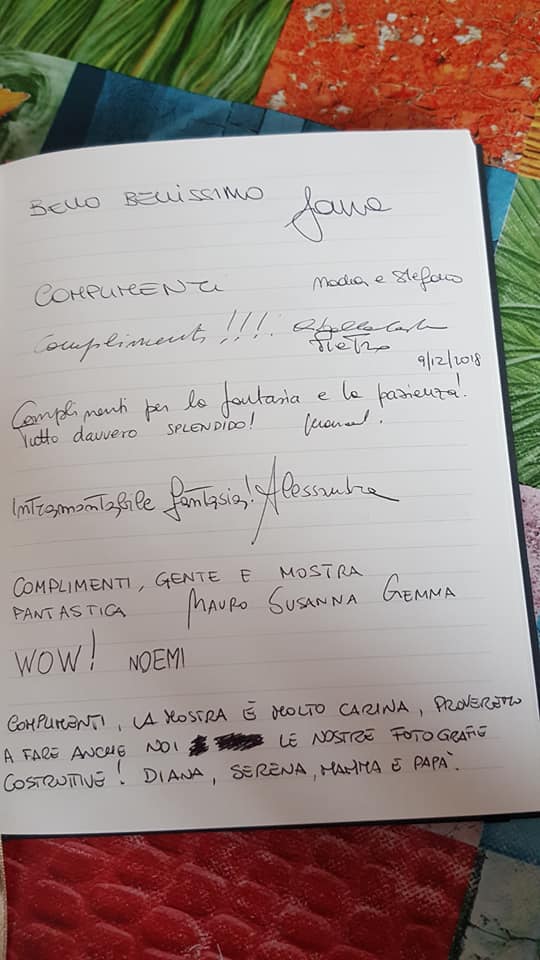 BELLO BELLISSIMO
COMPLIMENTI Nadia e Stefano
Complimenti!!!!
Pietro
9/12/2018
Complimenti per la fantasia e la pazienza!
Tutto davvero SPLENDIDO! Manuel.
Intramontabile fantasia! Alessandra
COMPLIMENTI, GENTE E MOSTRA
FANTASTICA MAURO SUSANNA GEMMA
WOW! NOEMI
COMPLIMENTI, LA MOSTRA È MOLTO CARINA, PROVEREMO
A FARE ANCHE NOI LE NOSTRE FOTOGRAFIE
COSTRUTTIVE! DIANA, SERENA, MAMMA E PAPÀ.